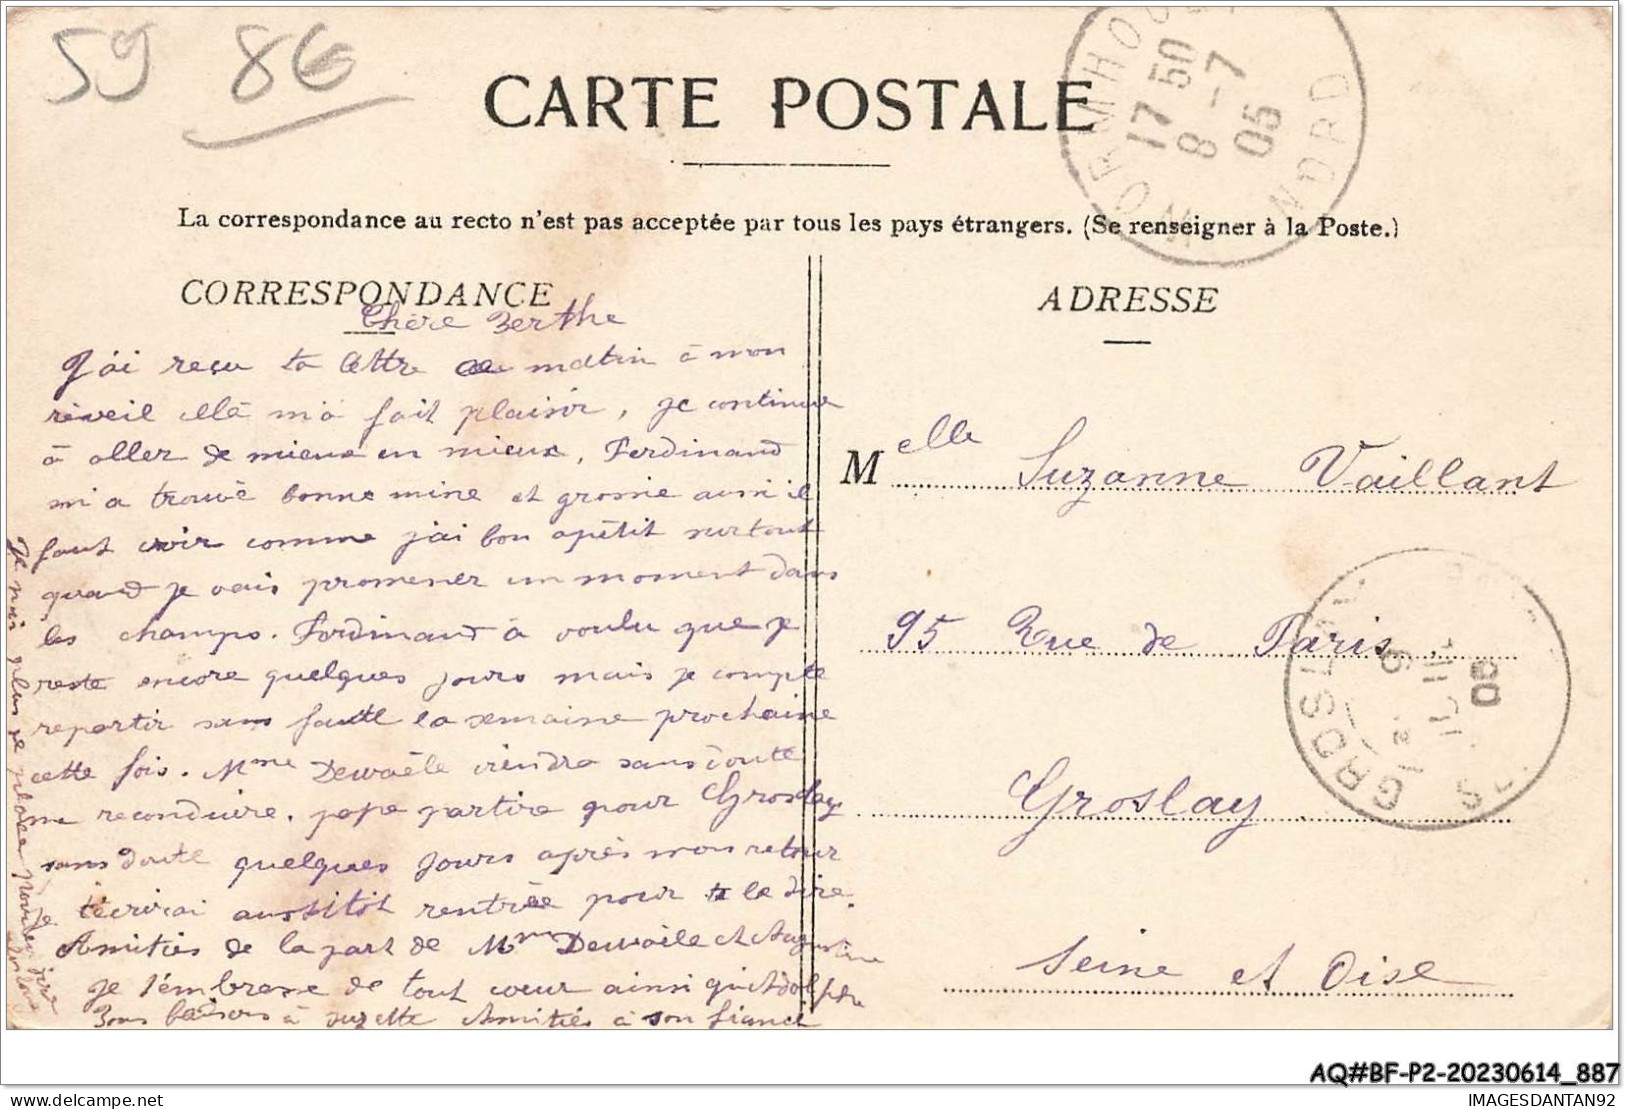 59 86
CARTE POSTALE
WORMHOUT NORD
17 50
8 - 7
05
La correspondance au recto n'est pas acceptée par tous les pays étrangers. (Se renseigner à la Poste.)
CORRESPONDANCE
ADRESSE
Chère Berthe
J'ai reçu ta lettre ce matin à mon
réveil elle m'a fait plaisir, je continue
à aller de mieux en mieux, Ferdinand
m'a trouvé bonne mine et grossie aussi il
faut voir comme j'ai bon apétit surtout
quand je vais promener un moment dans
les champs. Ferdinand à voulu que je
reste encore quelques jours mais je compte
repartir sans faute la semaine prochaine
cette fois. Mme Dewaële viendra sans doute
me reconduire. papa partira pour Groslay
sans doute quelques jours après mon retour
Je t'écrirai aussitôt rentrée pour te le dire.
Amitiés de la part de Mme Dewaële et Augustine
Je t'embrasse de tout cœur ainsi qu'Adolphe
Bons baisers à Suzette Amitiés à son fiancé
Je n'ai plus de place pour en dire
Melle Suzanne Vaillant
95 Rue de Paris
Groslay
Seine et Oise
GROSLAY
AQ#BF-P2-20230614_887
IMAGESDANTAN92